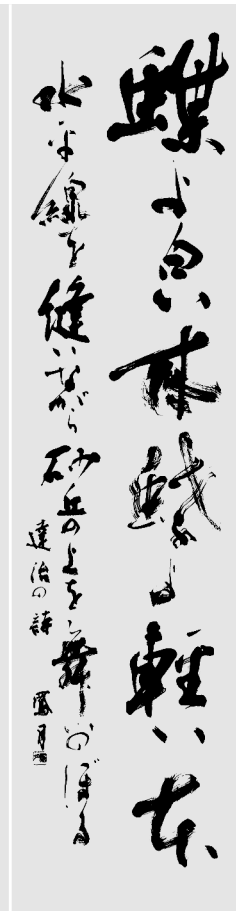 蝶よ白い本蝶よ軽い本
水平線を縫いながら砂丘の上を舞いのぼる
達治の詩 鳳月